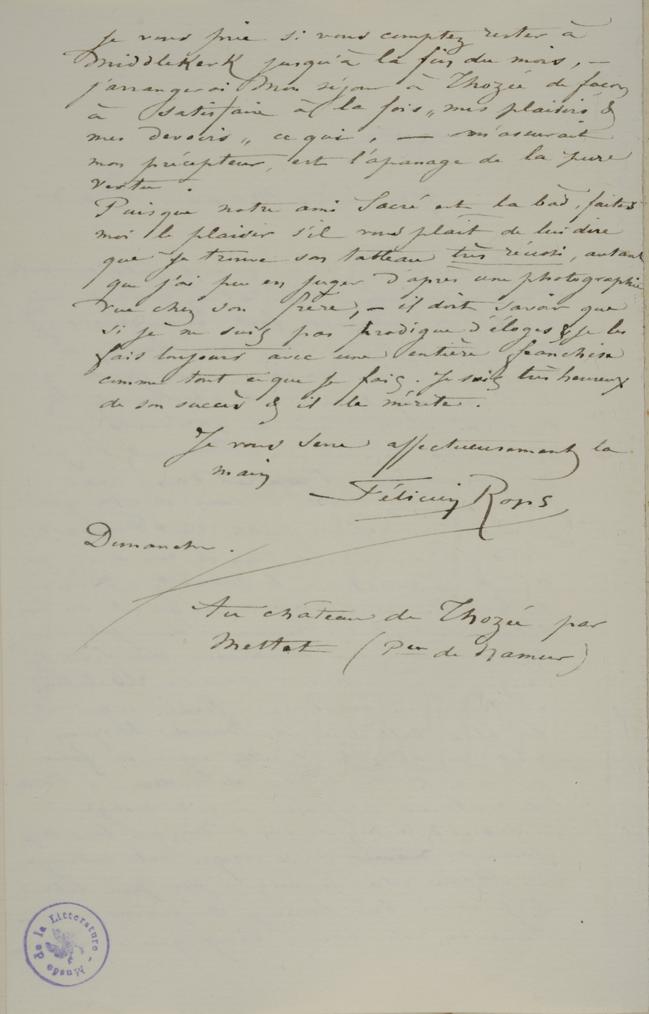 je vous prie si vous comptez rester à
Middlekerk jusqu'à la fin du mois, –
j'arrangerai mon séjour à Thozée de façon
à satisfaire à la fois „ mes plaisirs &
mes devoirs „ ce qui, – m'assurait
mon précepteur, est l'apanage de la pure
vertu.
Puisque notre ami Sacré est là bas, faites
moi le plaisir s'il vous plait de lui dire
que je trouve son tableau très réussi, autant
que j'ai pu en juger d'après une photographie
vue chez son frère, – il doit savoir que
si je ne suis pas prodigue d'éloges & je les
fais toujours avec une entière franchise
comme tout ce que je fais. Je suis très heureux
de son succès & il le mérite.
Je vous serre affectueusement la
main
Félicien Rops
Dimanche.
Au château de Thozée par
Mettet (Pce de Namur)
Musée de la Littérature -